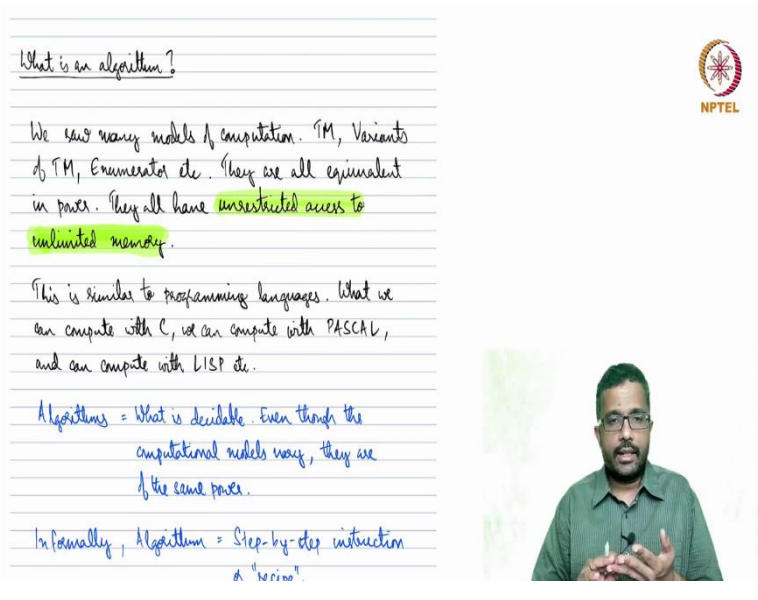 What is an algorithm?
We saw many models of computation. TM, Variants
of TM, Enumerator etc. They are all equivalent
in power. They all have unrestricted access to
unlimited memory.
This is similar to programming languages. What we
can compute with C, we can compute with PASCAL,
and can compute with LISP etc.
Algorithms = What is decidable. Even though the
computational models vary, they are
of the same power.
Informally, Algorithm = Step-by-step instruction
or "recipe".
NPTEL